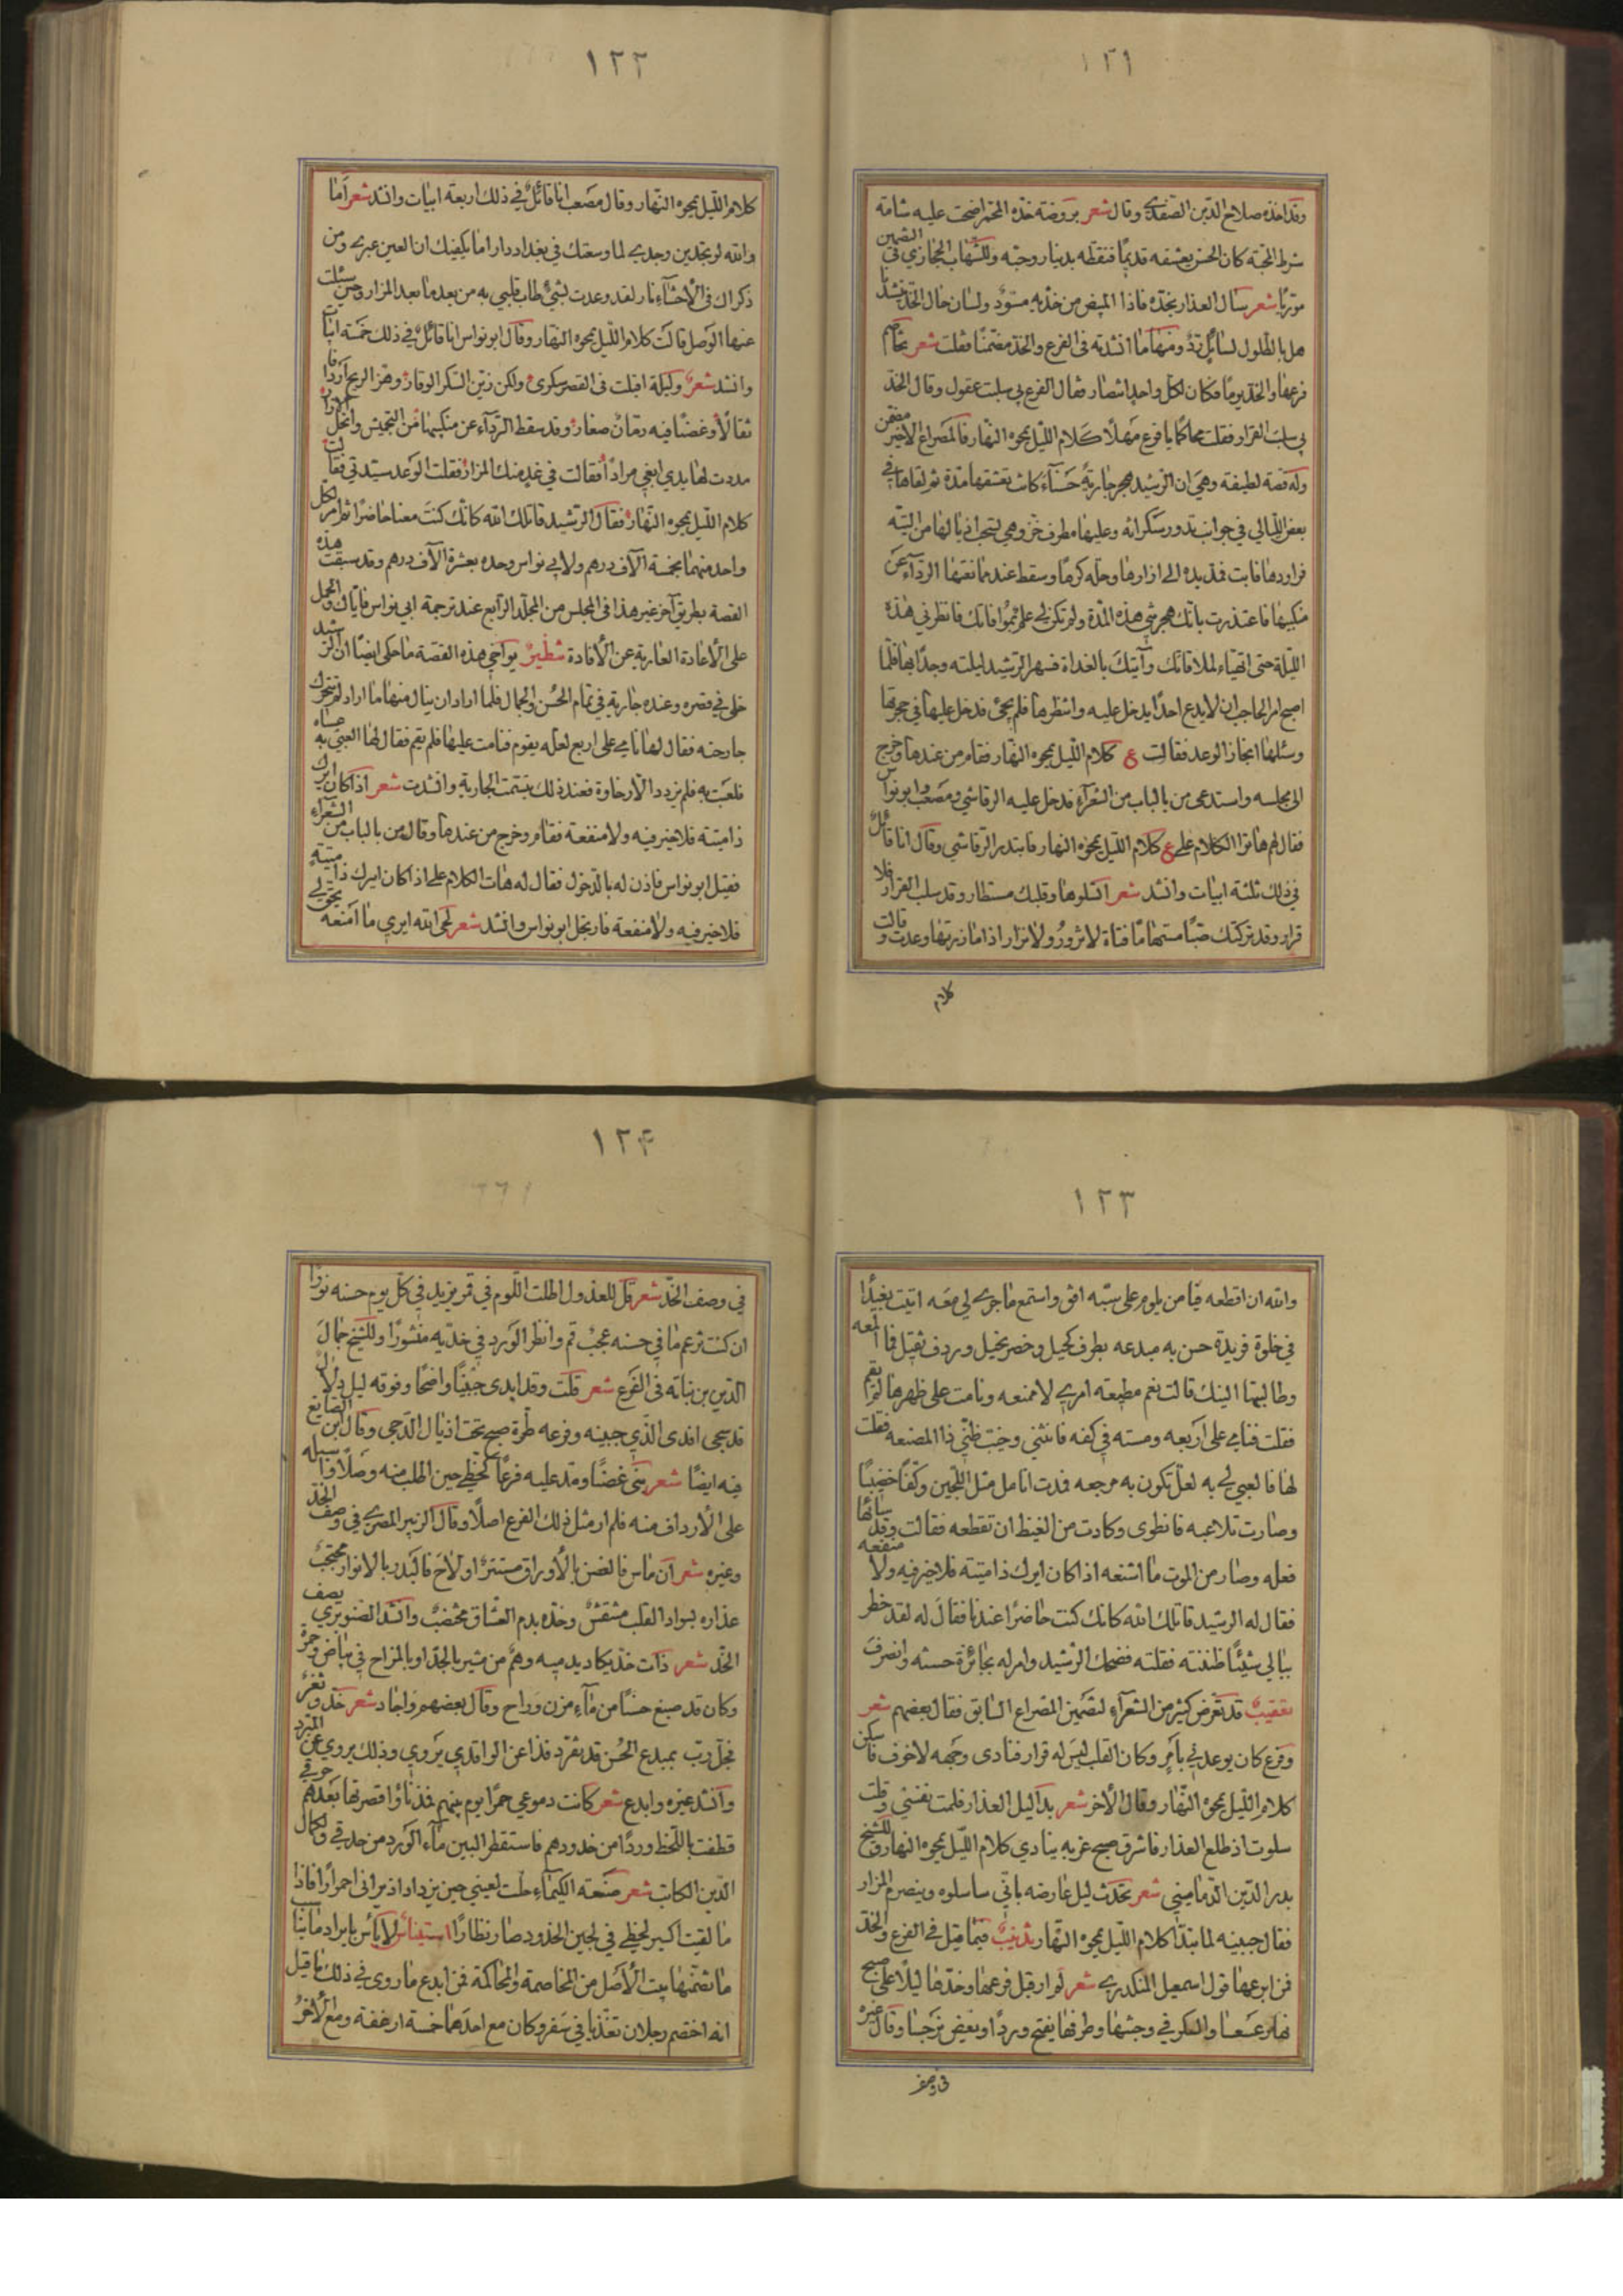 ١٢١
وقد اخذه صلاح الدين الصفدي وقال شعر بروضة خده المحمر اضحت عليه شامة
شرط المحبة كان الحسن يعشقه قديما فنقطه بدينار وحبه وللشهاب الحجازي في التضمين
موريا شعر سال العذار بخده فاذا المبيض من خديه مسود ولسان حال الخد ينشدنا
هل بالطلول لسائل رد ومنها ما انشدته في الفرع والخد مضمنا فقلت شعر تخاصم
فرعها والخد يوما فكان لكل واحد انتصار فقال الفرع بي سلبت عقول وقال الخد
بي سلب القرار فقلت محاكما يا فرع مهلا كلام الليل يمحوه النهار فالمصراع الاخير مضمن
وله قصة لطيفة وهي ان الرشيد هجر جارية حسناء كان يتعشقها مدة ثم لقاها في
بعض الليالي في جوانب تدور سكرانه وعليها مطرف خز وهي تسحب اذيالها من التيه
فراودها فابت فمد يده الى ازارها وحله كرها وسقط عند ممانعتها الرداء عن
منكبيها فاعتذرت بانك هجرتني هذه المدة ولم تكن لي علم بموافاتك فانظرني هذه
الليلة حتى اتهياء لملاقاتك وآتيك بالغداة فسهر الرشيد ليلته وجدا بها فلما
اصبح امر الحاجب ان لا يدع احدا يدخل عليه وانتظرها فلم تجئ فدخل عليها في حجرتها
وسئلها انجاز الوعد فقالت ع كلام الليل يمحوه النهار فقام من عندها وخرج
الى مجلسه واستدعى من بالباب من الشعراء فدخل عليه الرقاشي ومصعب وابو نواس
فقال لهم هاتوا الكلام على ع كلام الليل يمحوه النهار فابتدر الرقاشي وقال انا قائل
في ذلك ثلثة ابيات وانشد شعر اتسلوها وقلبك مستطار وقد سلب القرار فلا
قرار وقد تركتك صبا مستهاما فتاة لا تزور ولا تزار اذا ما زرتها وعدت وقالت
كلام
١٢٢
كلام الليل يمحوه النهار وقال مصعب انا قائل في ذلك اربعة ابيات وانشد شعر اما
والله لو تجدين وجدي لما وسعتك في بغداد دار اما يكفيك ان العين عبرى ومن
ذكراك في الاحشاء نار لقد وعدت بشئ طاب قلبي به من بعد ما بعد المزار وحين سئلت
عنها الوصل قالت كلام الليل يمحوه النهار وقال ابو نواس انا قائل في ذلك خمسة ابيات
وانشد شعر وليلة اقبلت في القصر سكرى ولكن زين السكر الوقار وهز الريح اردافا
ثقالا وغضنا فيه رمان صغار وقد سقط الرداء عن منكبيها من التجميش وانحل الازار
مددت لها يدي ابغي مرادا فقالت في غد منك المزار فقلت الوعد سيدتي فقالت
كلام الليل يمحوه النهار فقال الرشيد قاتلك الله كانك كنت معنا حاضرا ثم امر لكل
واحد منهما بخمسة آلاف درهم ولابي نواس وحده بعشرة آلاف درهم وقد سبقت هذه
القصة بطريق آخر غير هذا في المجلس من المجلد الرابع عند ترجمة ابي نواس فاياك والحمل
على الاعادة العارية عن الافادة شطير يواخي هذه القصة ما حكى ايضا ان الرشيد
خلى في قصره وعنده جارية في تمام الحسن والجمال فلما اراد ان ينال منها ما اراد لم تتحرك
جارحته فقال لها نامي على اربع لعله يقوم فنامت عليها فلم يقم فقال لها العبي به عساه
فلعبت به فلم يزدد الا رخاوة فعند ذلك تبتمت الجارية وانشدت شعر اذا كان ايرك
ذا ميتة فلا خير فيه ولا منفعة فقام وخرج من عندها وقال من بالباب من الشعراء
فقيل ابو نواس فاذن له بالدخول فقال له هات الكلام على اذا كان ايرك ذا ميتة
فلا خير فيه ولا منفعة فارتجل ابو نواس وانشد شعر لحى الله ايري ما امنعه يحق لي
١٢٣
والله ان اقطعه فيا من يلوم على سبه افق واستمع ما جرى لي معه اتيت بغيدا
في خلوة فريدة حسن به مبدعه بطرف كحيل وخصر نحيل وردف ثقيل فما امعه
وطالبتها النيك قالت نعم مطيعة امرك لا ممنعه ونامت على ظهرها لم يقم
فقلت فنامي على اربعه ومسته في كفه فانثنى وخيب ظني ذا المصنعه فقلت
لها فالعبي لي به لعل تكون به مرجعه فمدت انامل مثل اللجين وكفا خضيبا
وصارت تلاعبه فانطوى وكادت من الغيظ ان تقطعه فقالت وقد سائها
فعله وصار من الموت ما اشنعه اذا كان ايرك ذا ميتة فلا خير فيه ولا منفعه
فقال له الرشيد قاتلك الله كانك كنت حاضرا عندنا فقال له لقد خطر
ببالي شيئا ظننته فقلته فضحك الرشيد وامر له بجائزة حسنه وانصرف
تعقيب قد تعرض كثير من الشعراء لتضمين المصراع السابق فقال بعضهم شعر
وفرع كان يوعدني بامر وكان القلب ليس له قرار فنادى وجهه لا خوف فاسكن
كلام الليل يمحوه النهار وقال الآخر شعر بدا ليل العذار فلمت نفسي وقلت
سلوت اذ طلع العذار فاشرق صبح غربه ينادي كلام الليل يمحوه النهار وللشيخ
بدر الدين الدماميني شعر تحدث ليل عارضه باني ساسلوه وينصرم المزار
فقال جبينه لما تبدا كلام الليل يمحوه النهار تذنيب فيما قيل في الفرع والخد
فمن ابدعها قول اسمعيل المنكدري شعر لم ار قبل فرعها وخدها ليلا على صبح
نهار عسعسا والسكر في وجنتها وطرفها يفتح وردا ويغض نرجسا وقال غيره
في وصف
١٢۴
في وصف الخد شعر قل للعذول اطلت اللوم في قمر يزيد في كل يوم حسنه نورا
ان كنت تزعم ما في حسنه عجب قم وانظر الورد في خديه منثورا وللشيخ جمال
الدين بن نباته في الفرع شعر قلت وقد ابدى جبينا واضحا وفوقه ليل دلال
قد سجى افدي الذي جبينه وفرعه طرة صبح تحت اذيال الدجى وقال ابن الصايغ
فيه ايضا شعر بنى غضنا ومد عليه فرعا كحظي حين اطلب منه وصلا واسبله
على الارداف منه فلم ار مثل ذلك الفرع اصلا وقال الزبير المصري في وصف الخد
وغيره شعر ان ماس فالغصن بالاوراق مستتر او لاح فالبدر بالانوار محتجب
عذاره بسواد القلب منتقش وخده بدم العشاق مختضب وانشد الصنوبري يصف
الخد شعر ذات خد يكاد يدميه وهم من مشير بالجد او بالمزاح في بياض وحمرة
وكان قد صبغ حسنا من ماء مزن وراح وقال بعضهم واجاد شعر خد وثغر
فجل رب بمبدع الحسن قد تفرد فذا عن الواقدي يروي وذلك يروي عن المبرد
وانشد غيره وابدع شعر كانت دموعي حمرا يوم بينهم فمذ ناؤا قصرتها بعدهم حرقي
قطفت باللحظ وردا من خدودهم فاستقطر البين ماء الورد من حدقي ولكمال
الدين الكاتب شعر صنعة الكيمياء صحت لعيني حين يزداد اذ يراني احمرارا فاذا
ما لقيت اكسير لحظي في لجين الخدود صار نظارا استيناس لا باس بايراد ما يناسب
ما تضمنها بيت الاصل من المخاصمة والمحاكمة فمن ابدع ما روي في ذلك ما قيل
انه اختصم رجلان تغذيا في سفر وكان مع احدهما خمسة ارغفة ومع الآخر